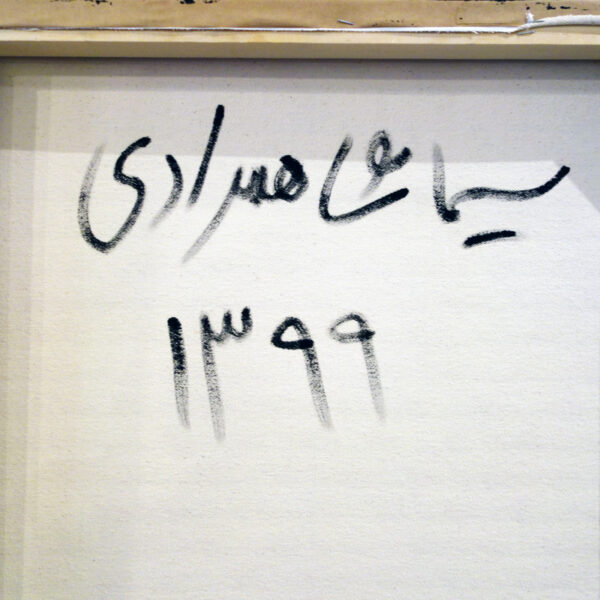 سیما شاهمرادی
۱۳۹۹